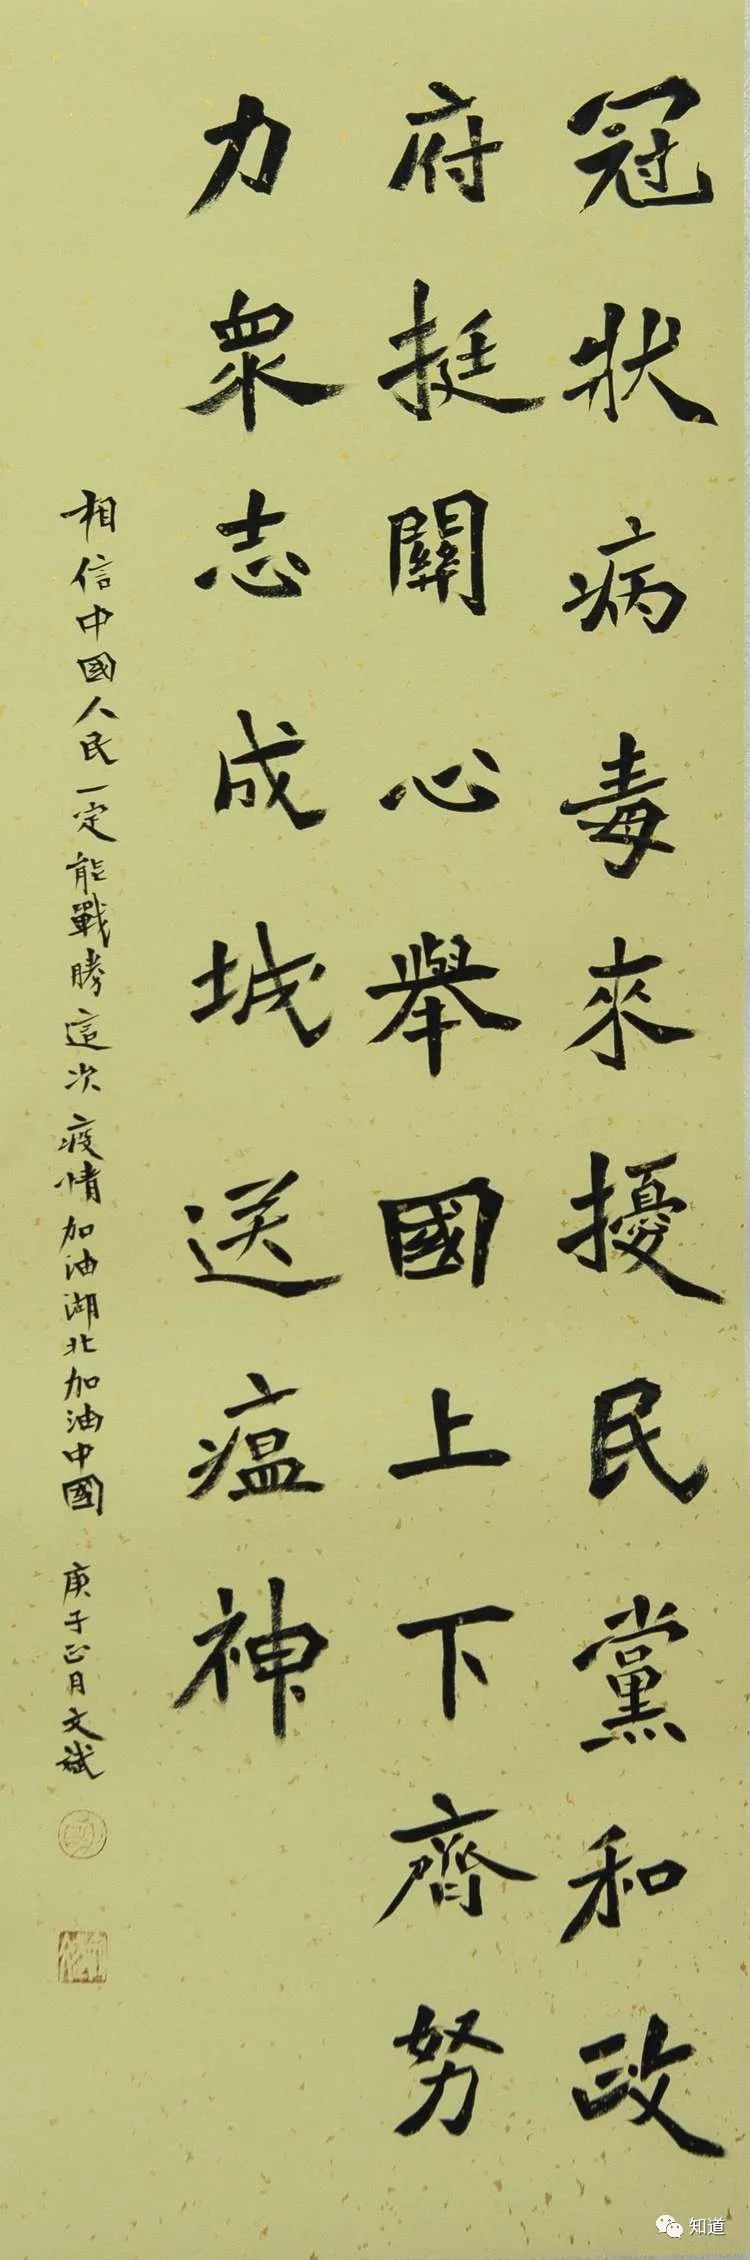 冠狀病毒來擾民黨和政
府挺關心舉國上下齊努
力衆志成城送瘟神
相信中國人民一定能戰勝這次疫情加油湖北加油中國 庚子正月文斌
知道